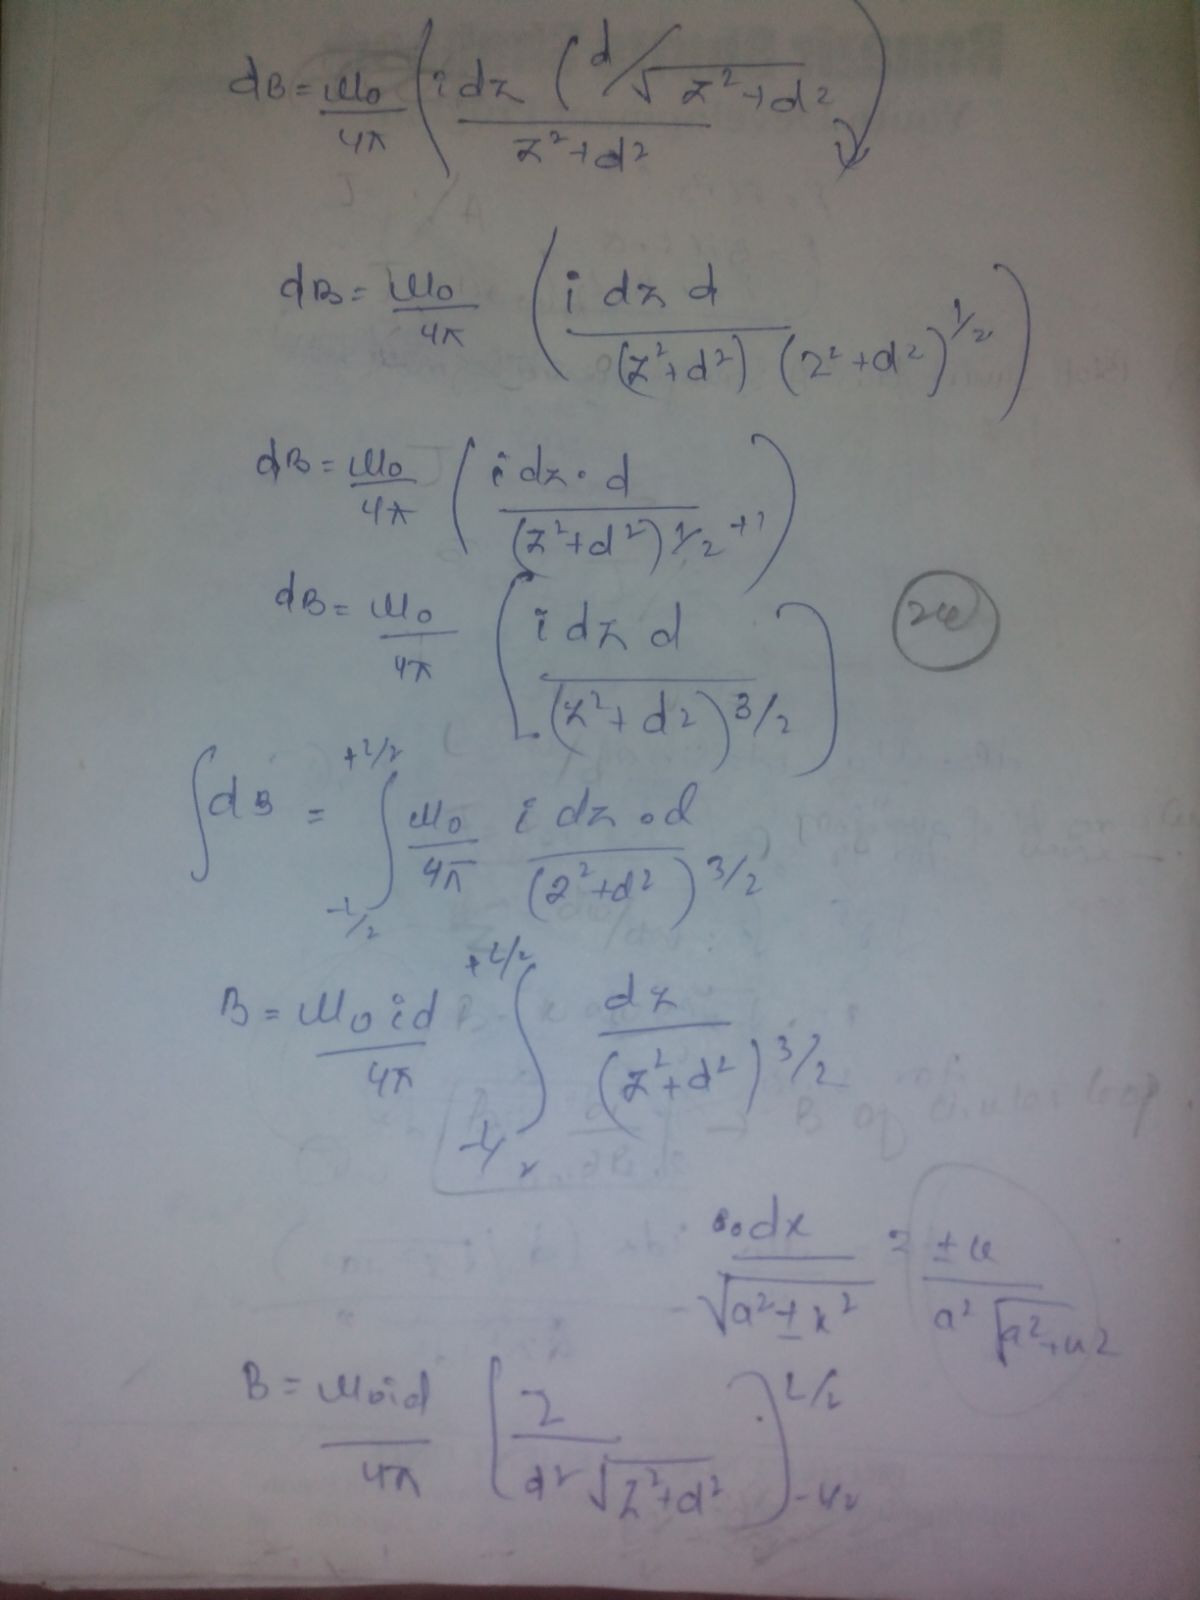 dB = μ₀/4π ( i dz ( d/√z²+d² ) / z²+d² )
dB = μ₀/4π ( i dz d / (z²+d²) (z²+d²)^1/2 )
dB = μ₀/4π ( i dz · d / (z²+d²)^1/2 +1 )
dB = μ₀/4π [ i dz d / (z²+d²)^3/2 ]
24
∫dB = ∫_-L/2^+L/2 μ₀/4π i dz · d / (z²+d²)^3/2
B = μ₀ i d / 4π ∫_-L/2^+L/2 dz / (z²+d²)^3/2
dx / √a²±x² = ±u / a² √a²+u²
B = μ₀ i d / 4π [ z / d² √z²+d² ]_-L/2^L/2